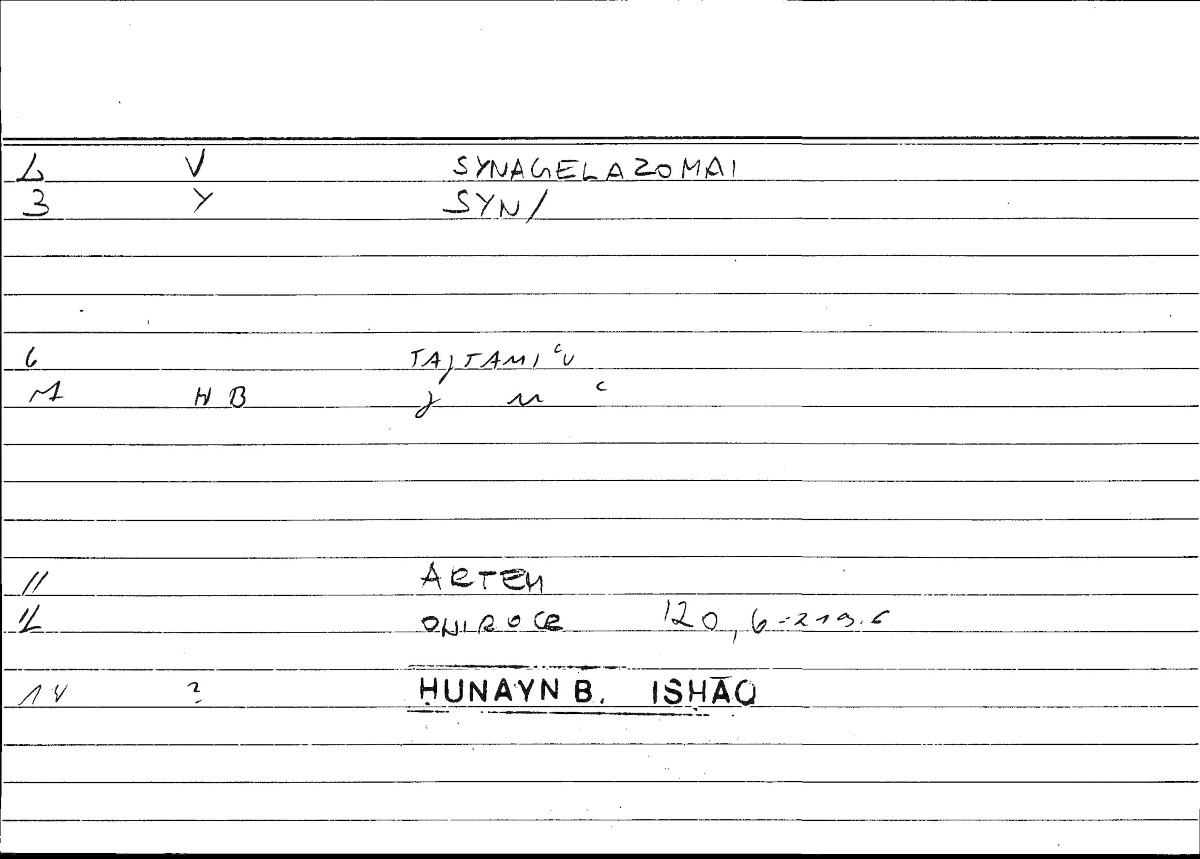 2 V SYNAGELAZOMAI
3 Y SYN/
6 TAJTAMIʿU
M HB J M ʿ
11 ARTEM
12 ONIROCR 120, 6 = 219.6
14 ? ḤUNAYN B. ISḤĀQ